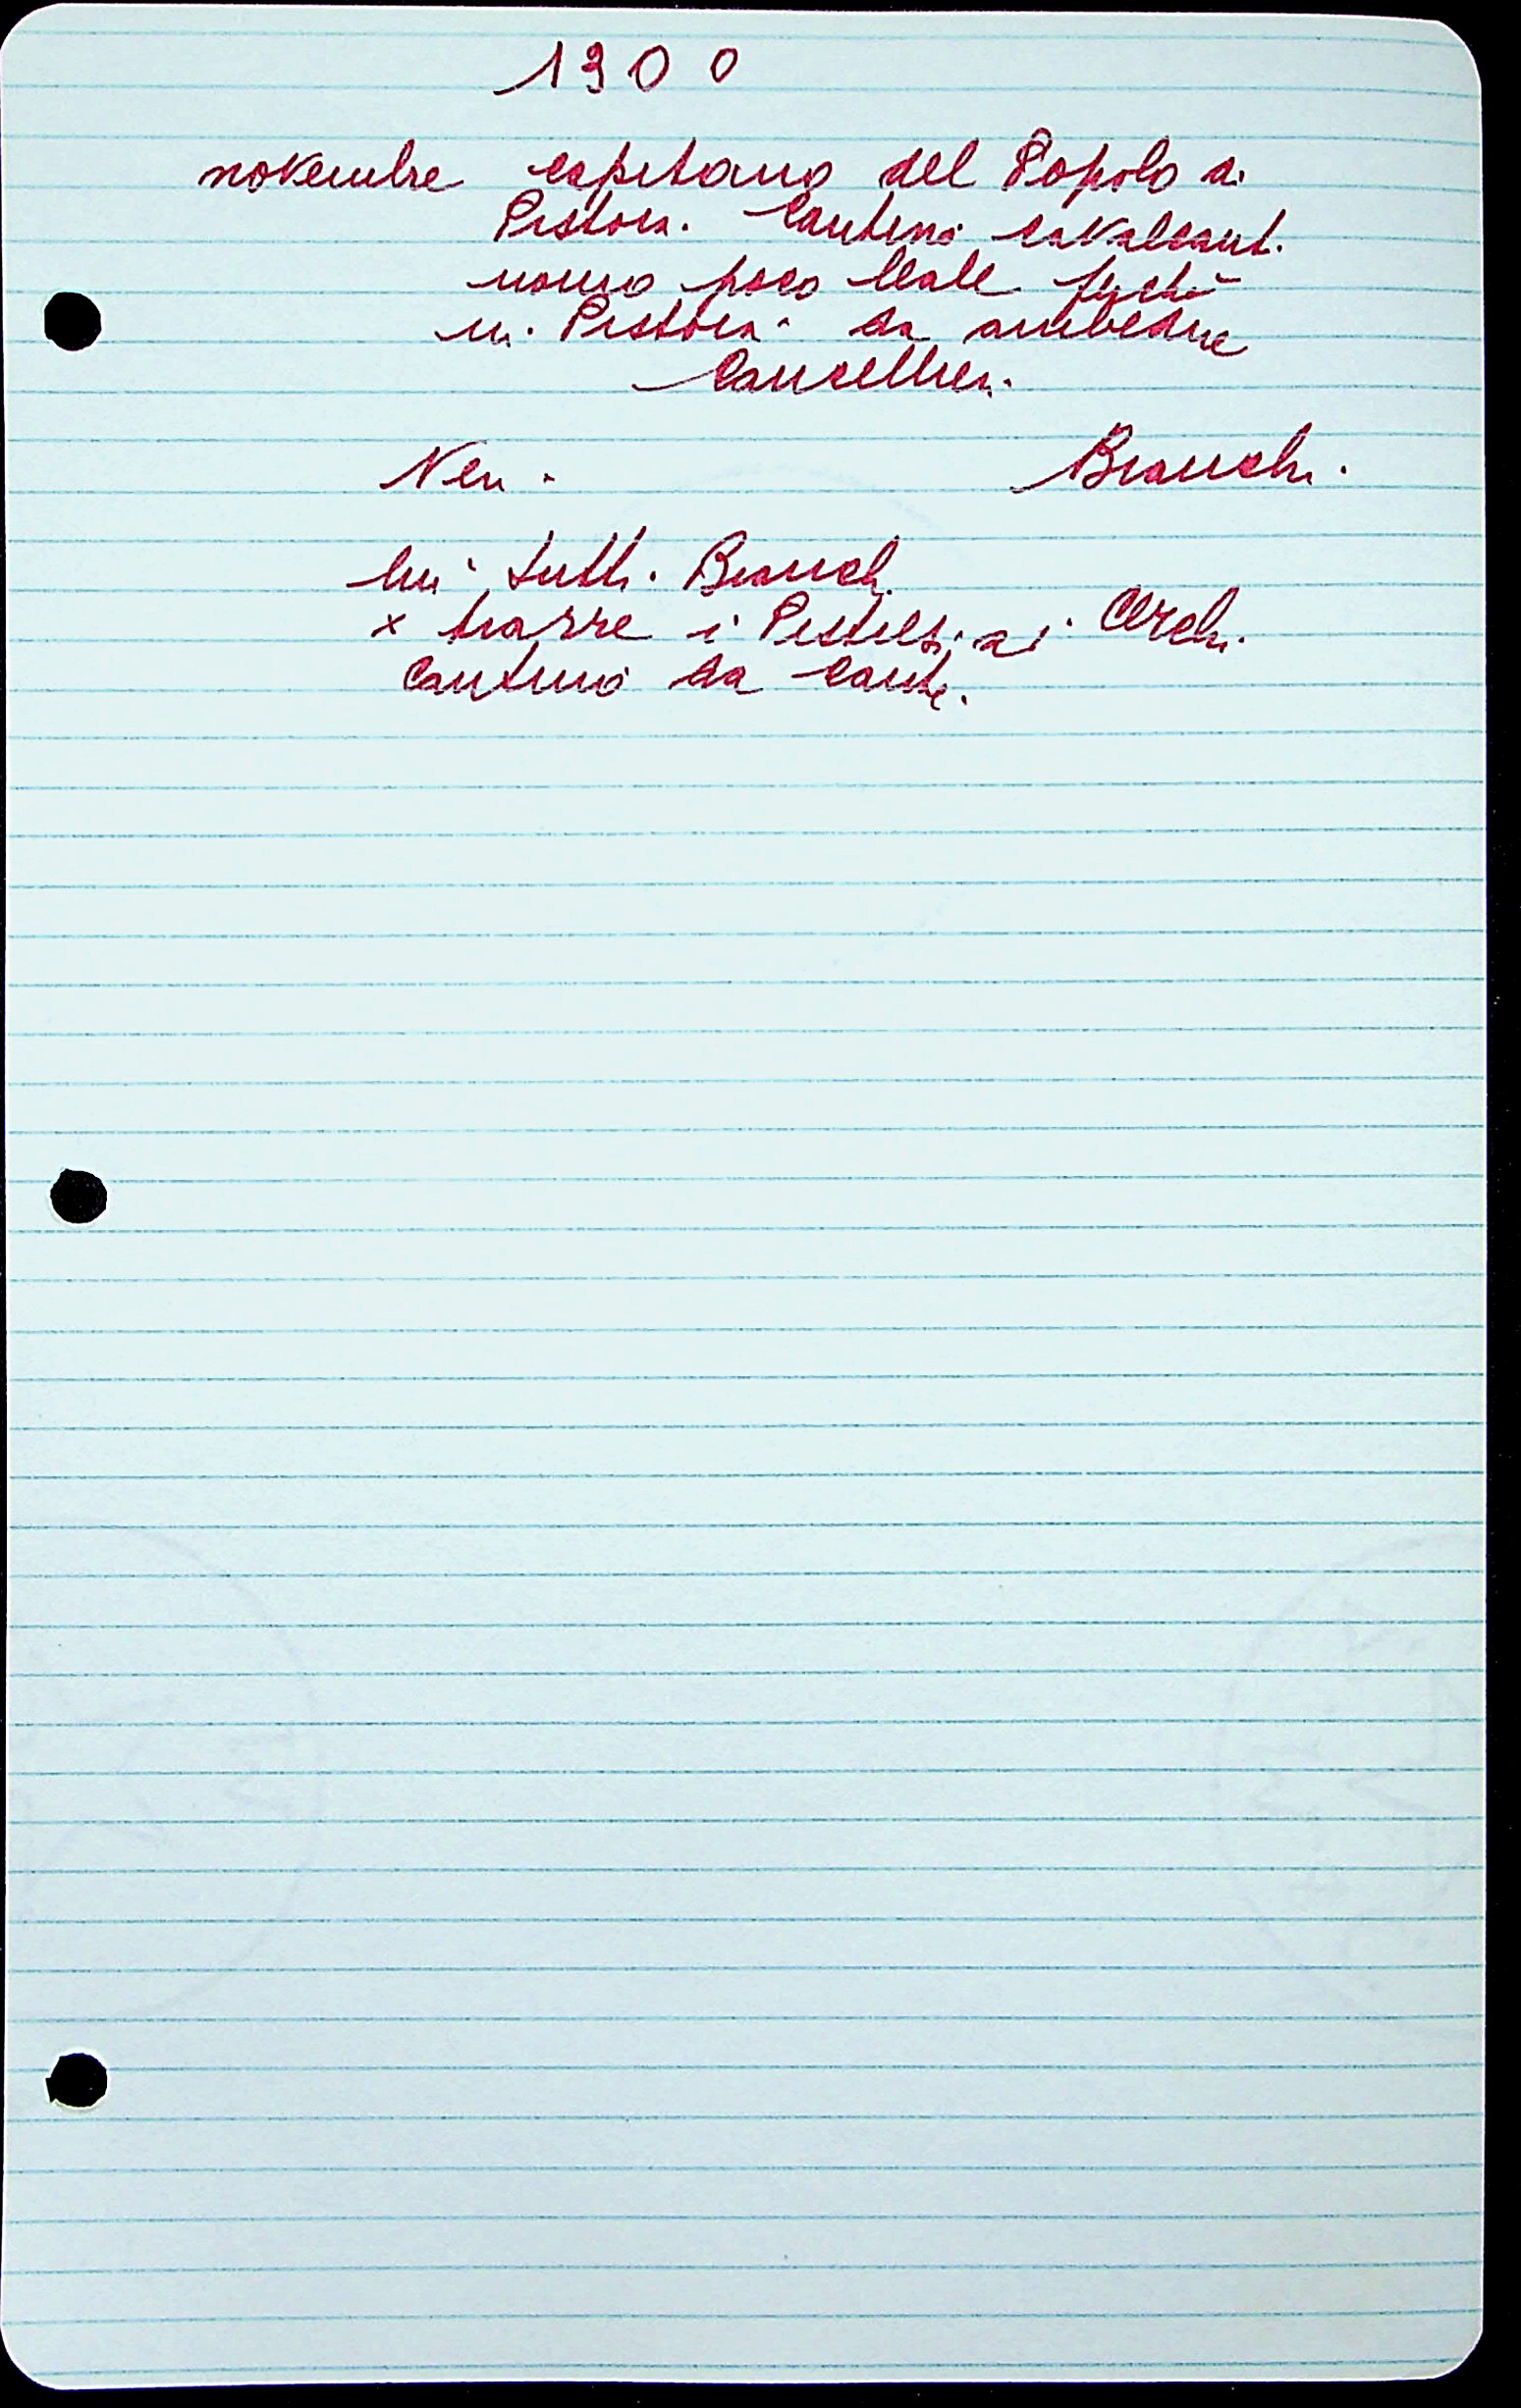 1300
novembre capitano del Popolo di
Pistoia. Cantino Cavalcanti.
uomo poco leale
in Pistoia. da ambedue
Cancellieri.
Neri. Bianchi.
lui tutti. Bianchi
x trarre i Pistoiesi ai Cerchi.
Cantino da Cante.